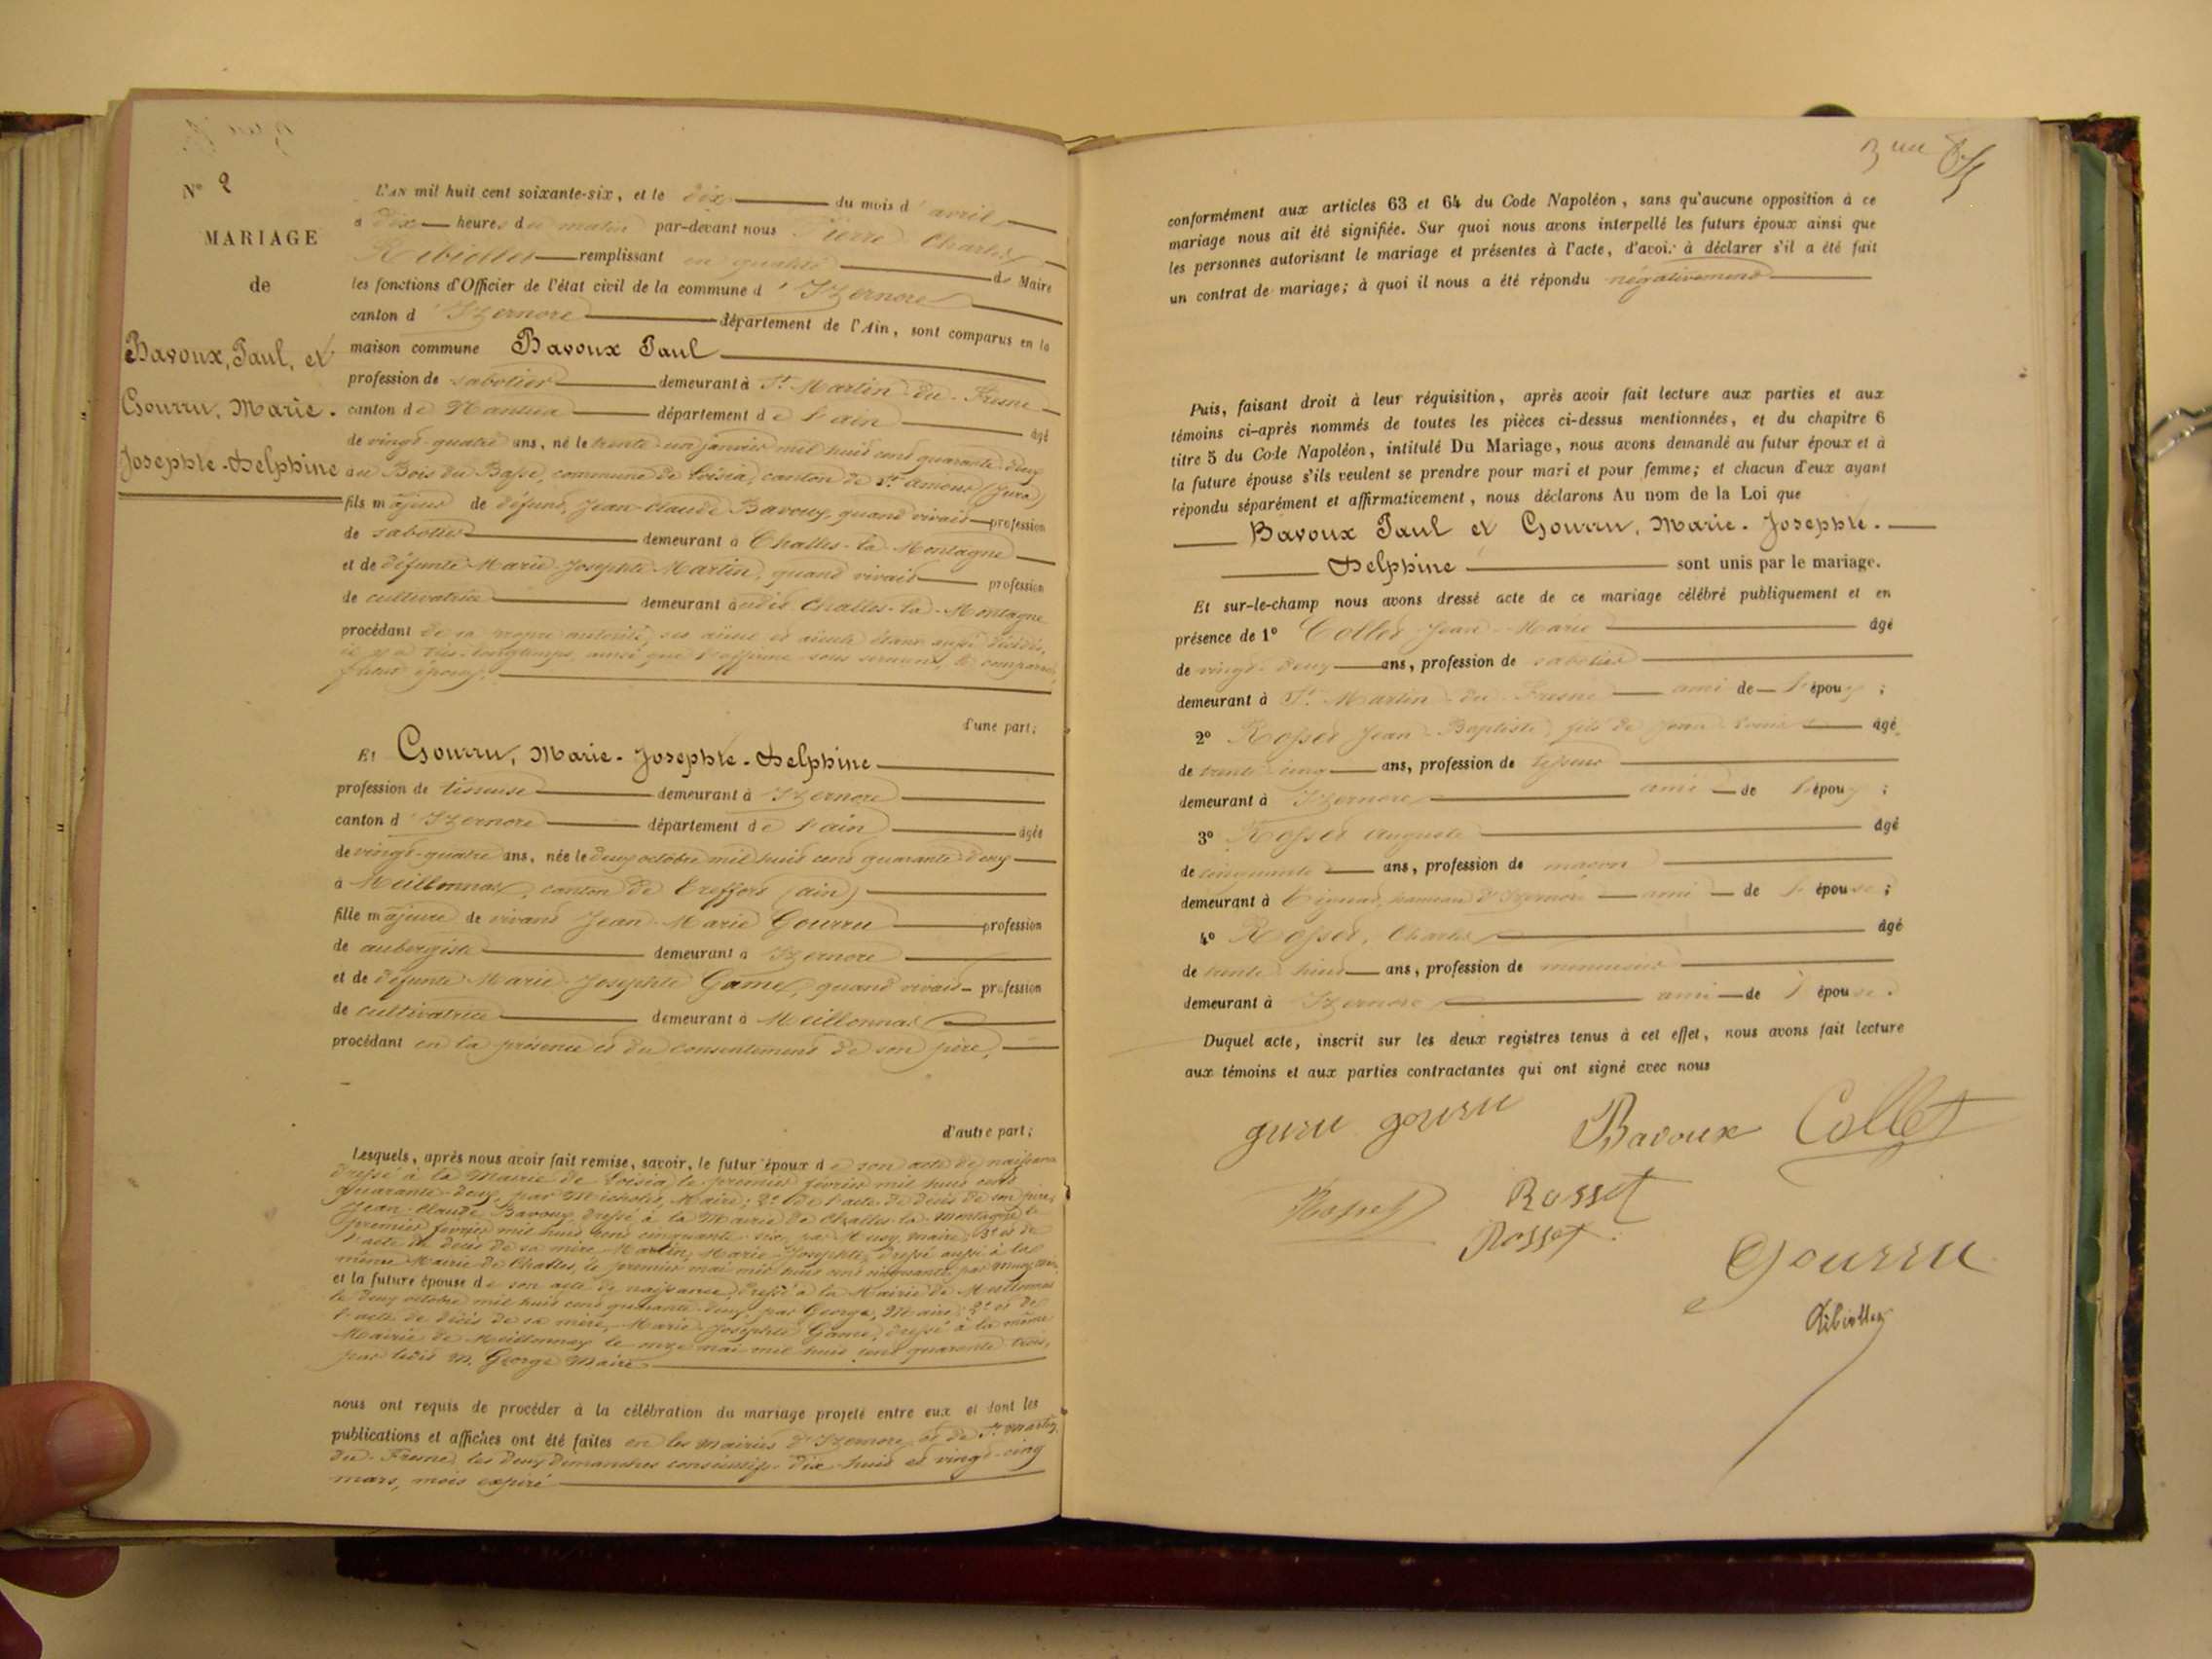 N° 2
MARIAGE
de
Bavoux, Paul, et
Gourru, Marie-
Josephte-Delphine
L'AN mil huit cent soixante-six, et le dix du mois d'avril
à dix heures du matin par-devant nous Pierre Charles
Ribiollet remplissant en qualité de Maire
les fonctions d'Officier de l'état civil de la commune d'Izernore
canton d'Izernore département de l'Ain, sont comparus en la
maison commune Bavoux Paul
profession de sabotier demeurant à St Martin-du-Fresne
canton de Nantua département de l'ain âgé
de vingt-quatre ans, né le trente-un janvier mil huit cent quarante-deux
au Bois du Basse, commune de Loisia, canton de St amour (Jura)
fils majeur de défunt, Jean-Claude Bavoux, quand vivait profession
de sabotier demeurant à Challes-la-Montagne
et de défunte Marie-Josephte Martin, quand vivait profession
de cultivatrice demeurant audit Challes-la-Montagne
procédant de sa propre autorité, ses aïeuls et aïeules étant aussi décédés,
il y a très-longtemps, ainsi que l'affirme sous serment, le comparant,
futur époux.
d'une part;
Et Gourru, Marie-Josephte-Delphine
profession de tisseuse demeurant à Izernore
canton d'Izernore département de l'ain âgée
de vingt-quatre ans, née le deux octobre mil huit cent quarante-deux
à Meillonnas, canton de Treffort (ain)
fille majeure de vivant Jean-Marie Gourru profession
de aubergiste demeurant à Izernore
et de défunte Marie-Josephte Game, quand vivait profession
de cultivatrice demeurant à Meillonnas
procédant en la présence et du consentement de son père,
d'autre part;
Lesquels, après nous avoir fait remise, savoir, le futur époux de son acte de naissance
dressé à la Mairie de Loisia, le premier février mil huit cent
quarante-deux, par Maire; 2° de l'acte de décès de son père,
Jean-Claude Bavoux, dressé à la Mairie de Challes-la-Montagne le
premier février mil huit cent cinquante-six, par Mury, maire; 3° et de
l'acte de décès de sa mère Martin, Marie-Josephte, dressé aussi à la
même Mairie de Challes, le premier mai mil huit cent cinquante, par
et la future épouse de son acte de naissance, dressé à la Mairie de Meillonnas
le deux octobre mil huit cent quarante-deux, par George, Maire; 2° et de
l'acte de décès de sa mère, Marie-Josephte Game, dressé à la même
Mairie de Meillonnas le onze mai mil huit cent quarante-trois,
par ledit M. George Maire
nous ont requis de procéder à la célébration du mariage projeté entre eux et dont les
publications et affiches ont été faites en les mairies d'Izernore, et de St Martin
du-Fresne, les deux Dimanches consécutifs, dix-huit et vingt-cinq
mars, mois expiré
conformément aux articles 63 et 64 du Code Napoléon, sans qu'aucune opposition à ce
mariage nous ait été signifiée. Sur quoi nous avons interpellé les futurs époux ainsi que
les personnes autorisant le mariage et présentes à l'acte, d'avoir à déclarer s'il a été fait
un contrat de mariage; à quoi il nous a été répondu négativement
Puis, faisant droit à leur réquisition, après avoir fait lecture aux parties et aux
témoins ci-après nommés de toutes les pièces ci-dessus mentionnées, et du chapitre 6
titre 5 du Code Napoléon, intitulé Du Mariage, nous avons demandé au futur époux et à
la future épouse s'ils veulent se prendre pour mari et pour femme; et chacun d'eux ayant
répondu séparément et affirmativement, nous déclarons Au nom de la Loi que
Bavoux Paul et Gourru, Marie-Josephte-
Delphine sont unis par le mariage.
Et sur-le-champ nous avons dressé acte de ce mariage célébré publiquement et en
présence de 1° Collet Jean-Marie âgé
de vingt-deux ans, profession de sabotier
demeurant à St Martin-du-Fresne ami de l'époux;
2° Rosset Jean-Baptiste fils de Jean-Louis âgé
de trente-cinq ans, profession de
demeurant à Izernore ami de l'époux;
3° Rosset Auguste âgé
de cinquante ans, profession de maçon
demeurant à Tignat, hameau d'Izernore ami de l'épouse;
4° Rosset, Charles âgé
de trente-huit ans, profession de menuisier
demeurant à Izernore ami de l'épouse.
Duquel acte, inscrit sur les deux registres tenus à cet effet, nous avons fait lecture
aux témoins et aux parties contractantes qui ont signé avec nous
gouru Bavoux Collet
Rosset Rosset
Rosset
Gourru
Ribiollet